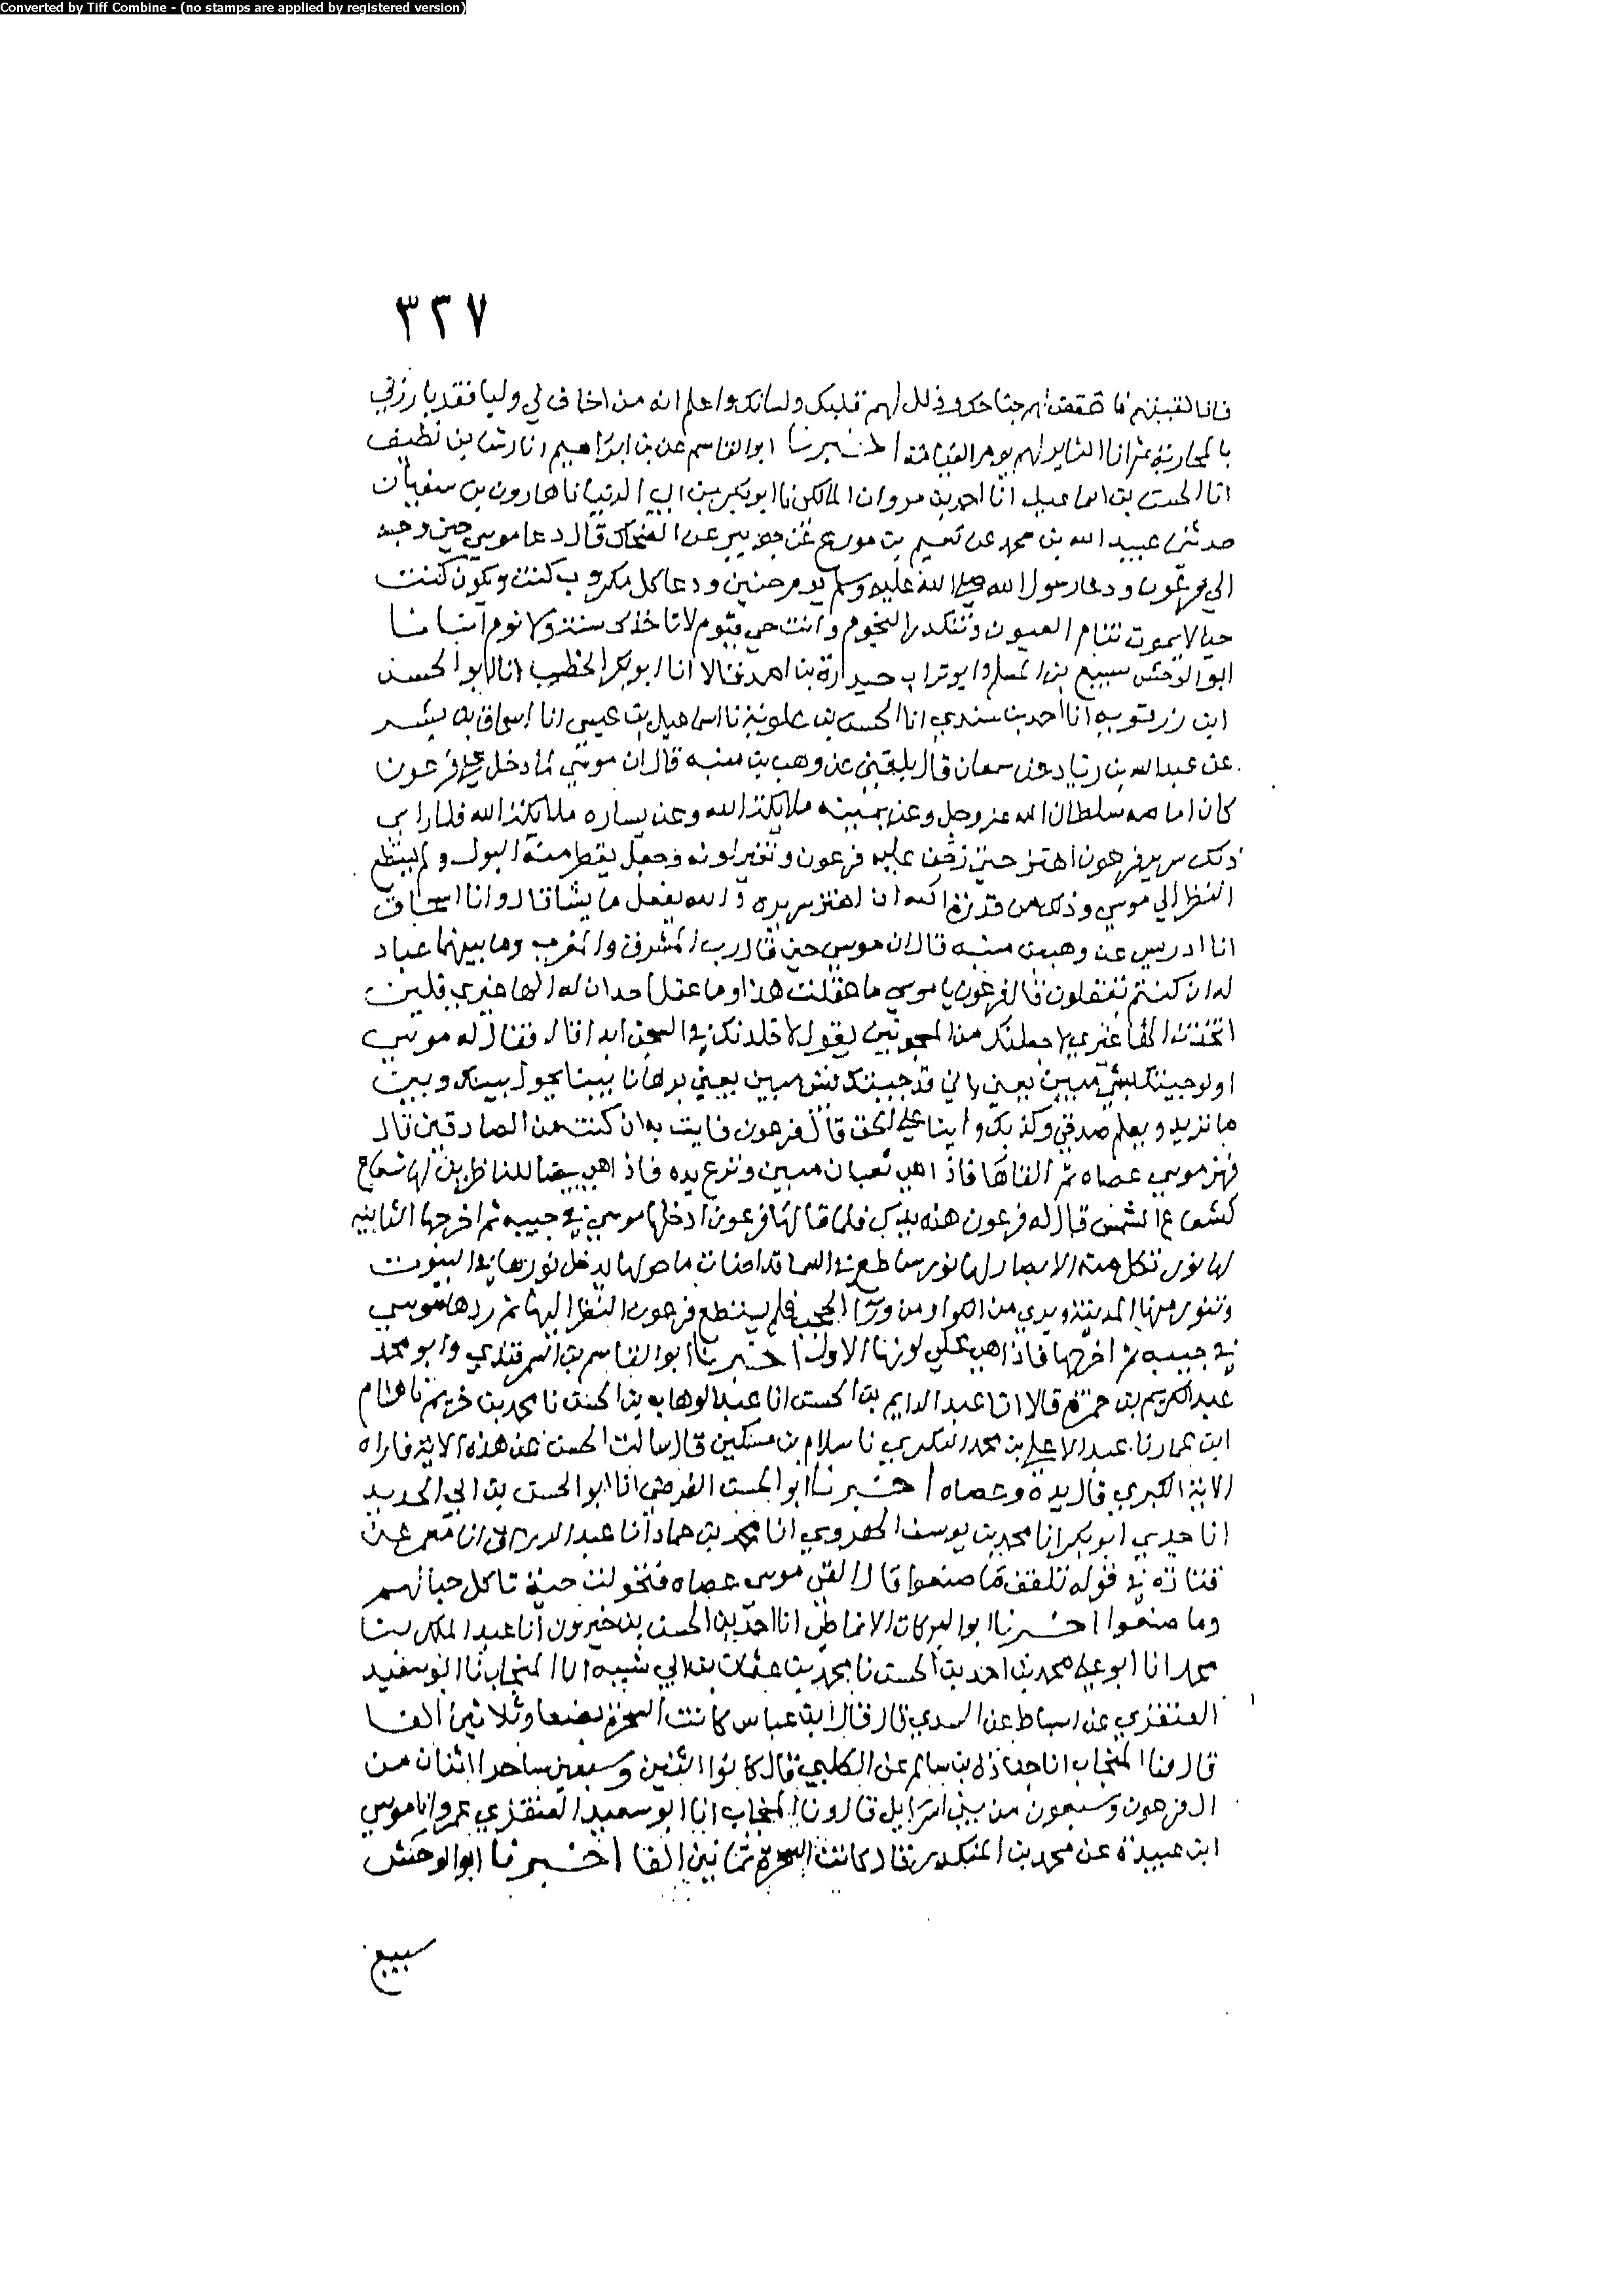 Converted by Tiff Combine - (no stamps are applied by registered version)
٣٢٧
فاذا لقيتهم فاخفض لهم جناحك وذلل لهم قلبك ولسانك واعلم انه من اخاف لي وليا فقد بارزني
بالمحاربة ثم انا الثاير لهم يوم القيامة اخبرنا ابو القاسم بن ابراهيم انا رشا بن نظيف
انا الحسن بن اسماعيل انا احمد بن مروان المالكي نا ابو بكر بن ابي الدنيا نا هارون بن سفيان
حدثني عبيد الله بن محمد عن نعيم بن مورع عن جويبر عن الضحاك قال دعا موسي حين وجه
الي فرعون ودعا رسول الله صلي الله عليه وسلم يوم حنين ودعا كل مكروب كنت وتكون كنت
حيا لا يموت تنام العيون وتنكدر النجوم وانت حي قيوم لا تاخذك سنة ولا نوم انبانا
ابو الوحش سبيع بن المسلم وابو تراب حيدرة بن احمد قالا انا ابو بكر الخطيب انا ابو الحسن
ابن رزقويه انا احمد بن سندي انا الحسن بن علوية نا اسماعيل بن عيسي انا اسحاق بن بشر
عن عبد الله بن زياد بن سمعان قال بلغني عن وهب بن منبه قال ان موسي لما دخل علي فرعون
كان امامه سلطان الله عز وجل وعن يمينه ملايكة الله وعن يساره ملايكة الله فلما راي
ذلك سرير فرعون اهتز حتي زحف عليه فرعون وتغير لونه وجعل يقطر منه البول ولم يستطع
النظر الي موسي وذلك من قدرة الله ان اهتز سريره والله يفعل ما يشا قال وانا اسحاق
انا ادريس عن وهب بن منبه قال ان موسي حين قال رب المشرق والمغرب وما بينهما عباد
له ان كنتم تعقلون قال فرعون يا موسي ما عقلت هذا وما عقل احد ان له الها غيري فلين
اتخذت الها غيري لاجعلنك من المسجونين يقول لاخلدنك في السجن ابدا قال فقال له موسي
اولو جيتك بشي مبين يعني باني قد جيتك بشي مبين يعني برهانا بينا يحول بينك وبين
ما تريد ويعلم صدقي وكذبك واينا علي الحق قال فرعون فايت به ان كنت من الصادقين قال
فهز موسي عصاه ثم القاها فاذا هي ثعبان مبين ونزع يده فاذا هي بيضا للناظرين لها شعاع
كشعاع الشمس قال له فرعون هذه يدك فلما قالها فرعون ادخلها موسي في جيبه ثم اخرجها الثانية
لها نور تكل منه الابصار لها نور ساطع في السما قد اضات ما حولها يدخل نورها في البيوت
وتنور منها المدينة ويري من الكوا ومن ورا الحجب فلم يستطع فرعون النظر اليها ثم ردها موسي
في جيبه ثم اخرجها فاذا هي علي لونها الاول اخبرنا ابو القاسم بن السمرقندي وابو محمد
عبد الكريم بن حمزة قالا انا عبد الدايم بن الحسن انا عبد الوهاب بن الحسن نا محمد بن خريم نا هشام
ابن عمار نا عبد الاعلي بن محمد البكري نا سلام بن مسكين قال سالت الحسن عن هذه الاية فاراه
الاية الكبري قال يده وعصاه اخبرنا ابو الحسن الفرضي انا ابو الحسن بن ابي الحديد
انا جدي ابو بكر انا محمد بن يوسف الهروي انا محمد بن حماد انا عبد الرزاق انا معمر عن
قتادة في قوله تلقف ما صنعوا قال القي موسي عصاه فتحولت حية تاكل حبالهم
وما صنعوا اخبرنا ابو البركات الانماطي انا احمد بن الحسن بن خيرون انا عبد الملك بن
محمد انا ابو علي محمد بن احمد بن الحسن نا محمد بن عثمان بن ابي شيبه انا المنجاب نا ابو سعيد
العنقزي عن اسباط عن السدي قال قال ابن عباس كانت السحرة بضعا وثلاثين الفا
قال ونا المنجاب انا جنادة بن سالم عن الكلبي قال كانوا اثنين وسبعين ساحرا اثنان من
ال فرعون وسبعون من بني اسرايل قال ونا المنجاب انا ابو سعيد العنقزي عمرو انا موسي
ابن عبيدة عن محمد بن المنكدر قال كانت السحرة ثمانين الفا اخبرنا ابو الوحش
سبيع